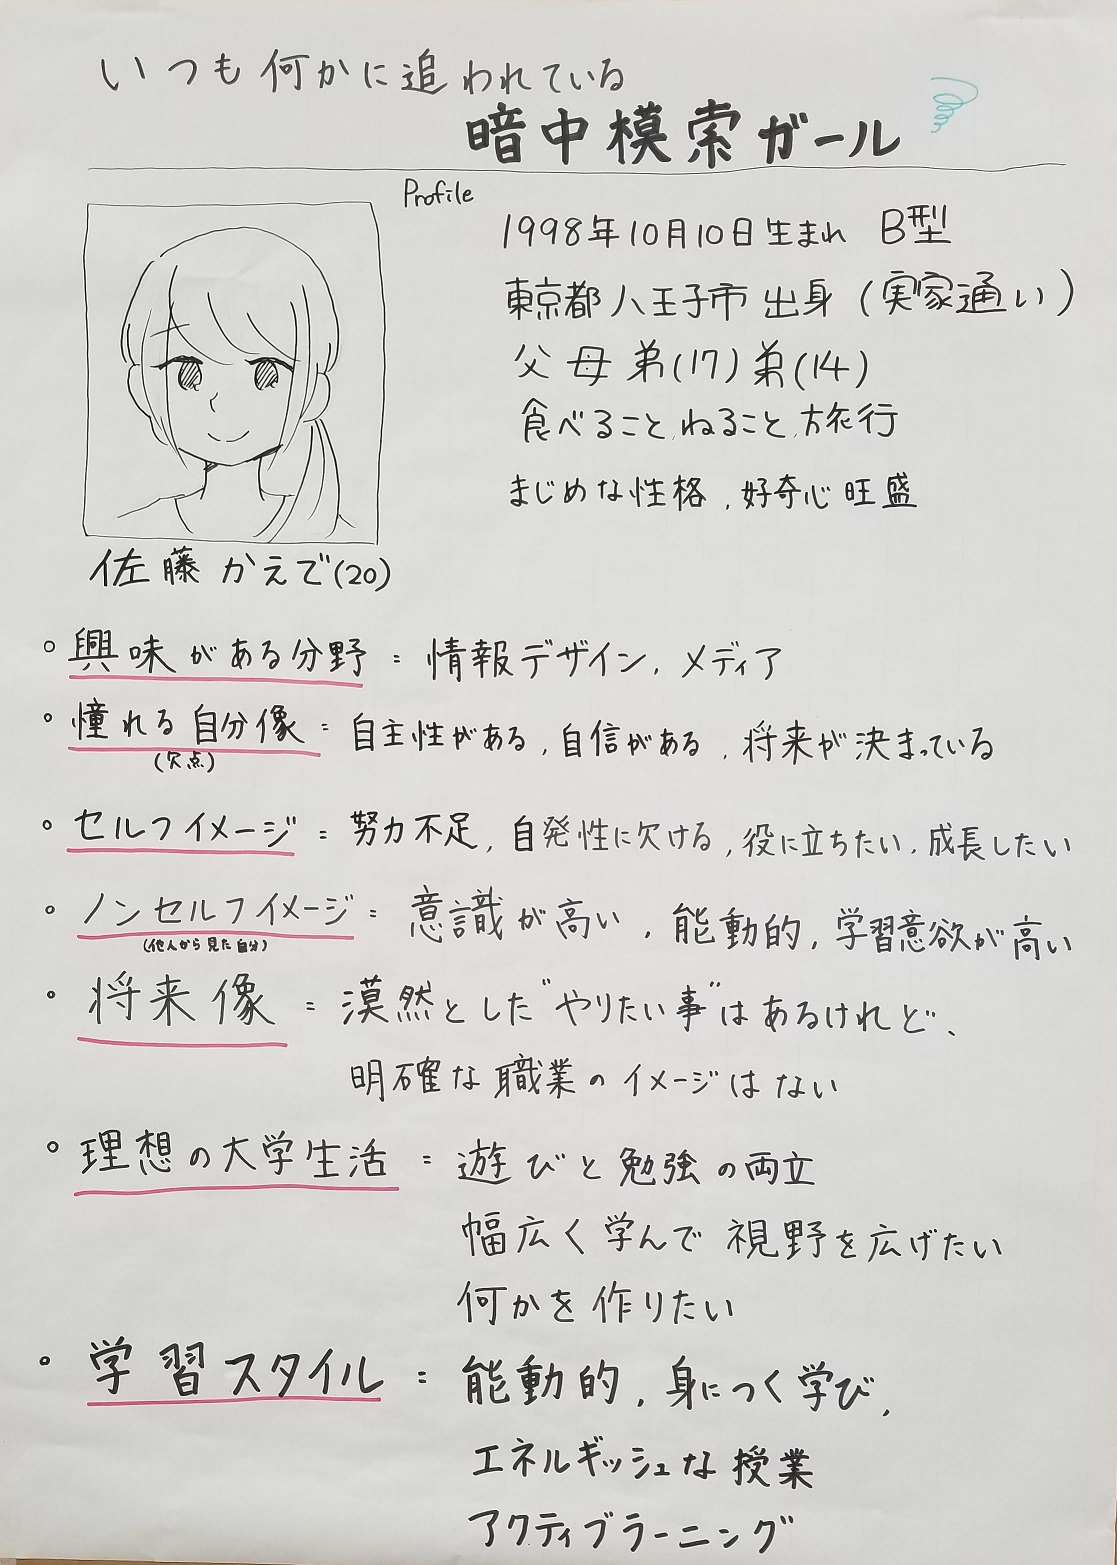 いつも何かに追われている
暗中模索ガール
Profile
1998年10月10日生まれ B型
東京都八王子市出身(実家通い)
父 母 弟(17) 弟(14)
食べること、ねること、旅行
まじめな性格、好奇心旺盛
佐藤かえで(20)
・興味がある分野:情報デザイン、メディア
・憧れる自分像:自主性がある、自信がある、将来が決まっている
(欠点)
・セルフイメージ:努力不足、自発性に欠ける、役に立ちたい、成長したい
・ノンセルフイメージ:意識が高い、能動的、学習意欲が高い
(他人から見た自分)
・将来像:漠然とした"やりたい事"はあるけれど、
明確な職業のイメージはない
・理想の大学生活:遊びと勉強の両立
幅広く学んで視野を広げたい
何かを作りたい
・学習スタイル:能動的、身につく学び、
エネルギッシュな授業
アクティブラーニング